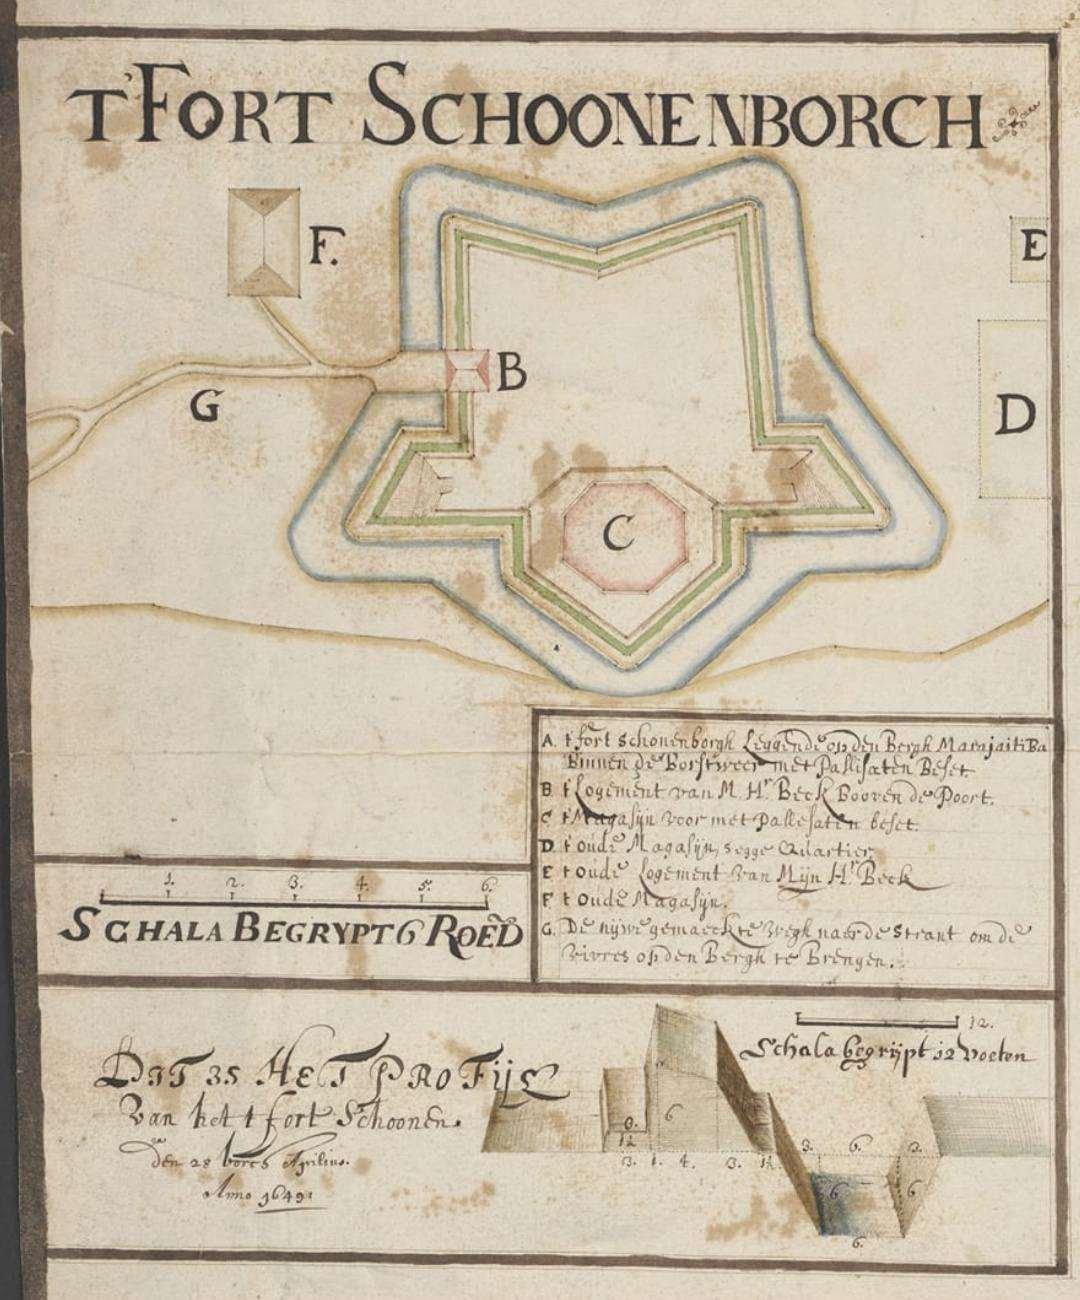 T'FORT SCHOONENBORCH
F.
E
B
D
G
C
A. t'fort Schonenborgh Leggende op den Bergh Marajaitiba
Binnen de Borstweer met Pallisaten Beset
B t'Logement van M. Hr. Beck Booven de Poort.
C t'Magasijn voor met Pallesaten beset.
D t'oude Magasijn, segge Quartier
E t'oude Logement van Mijn Hr. Beck
F t'oude Magasijn.
G. De nijwe gemaeckte wegh naer de Strant om de
vivres op den Bergh te Brengen.
1. 2. 3. 4. 5. 6.
SCHALA BEGRYPT 6 ROED
12.
Schala begrijpt 12 voeten
DIT IS HET PROFIJL
Van het t'fort Schoonen
borch
den 28 Aprilius.
Anno 1649
6
3. 1. 4. 3. 1½ 3. 6. 3.
6 6
6.